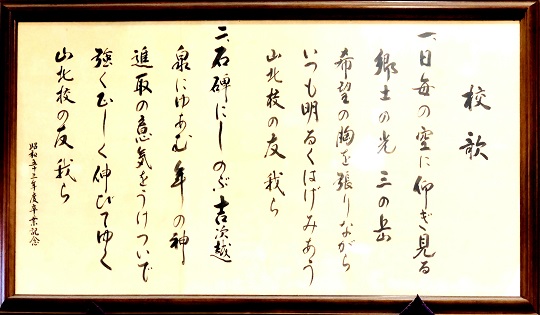 校歌
一、日毎の空に仰ぎ見る
郷土の光 三の岳
希望の胸を張りながら
いつも明るくはげみあう
山北校の友 我ら
二、石碑にしのぶ 吉次越
泉にゆあむ 年の神
進取の意気をうけついで
強く正しく伸びてゆく
山北校の友 我ら
昭和五十二年度卒業記念